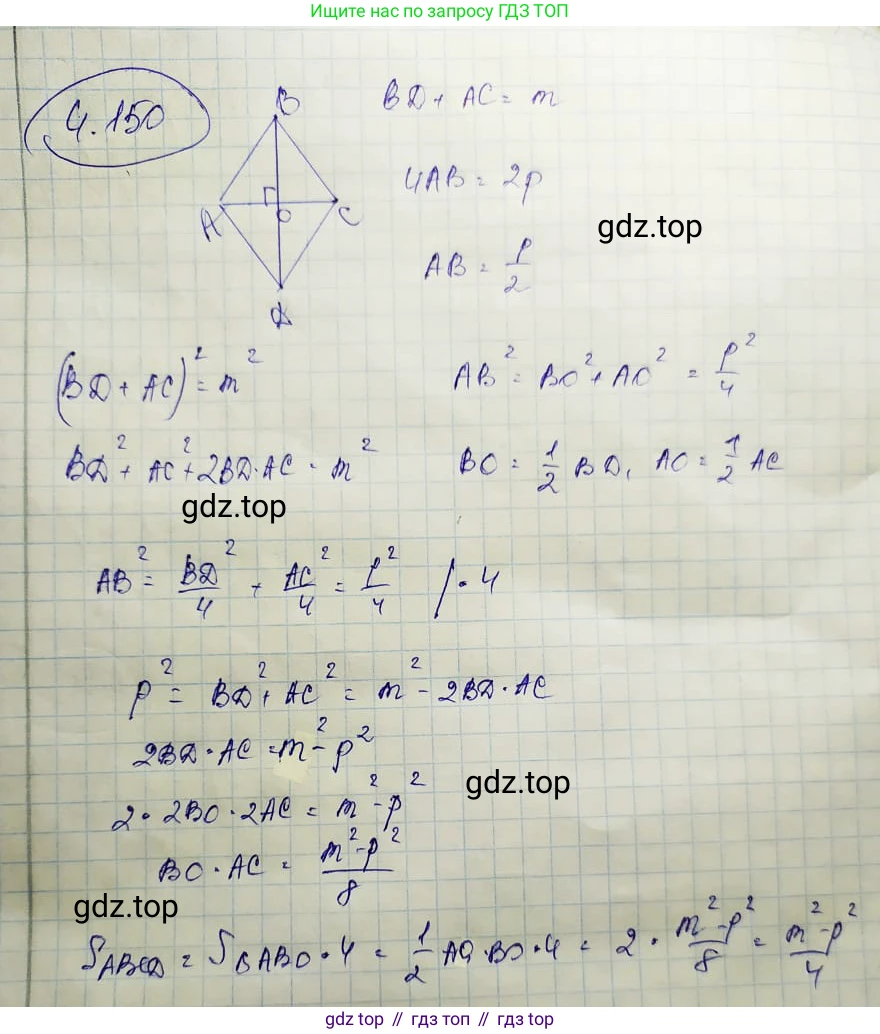 Ищите нас по запросу ГДЗ ТОП
4.150
BD + AC = m
B
4AB = 2p
A
O
C
gdz.top
AB = p/2
D
(BD + AC)² = m²
AB² = BO² + AO² = p²/4
BD² + AC² + 2BD·AC = m²
BO = 1/2 BD, AO = 1/2 AC
gdz.top
AB² = BD²/4 + AC²/4 = p²/4 /·4
p² = BD² + AC² = m² - 2BD·AC
2BD·AC = m² - p²
gdz.top
2·2BO·2AO = m² - p²
BO·AO = m² - p²/8
gdz.top
S ABCD = S ABO·4 = 1/2 AO·BO·4 = 2·m² - p²/8 = m² - p²/4
gdz.top // гдз топ // гдз top